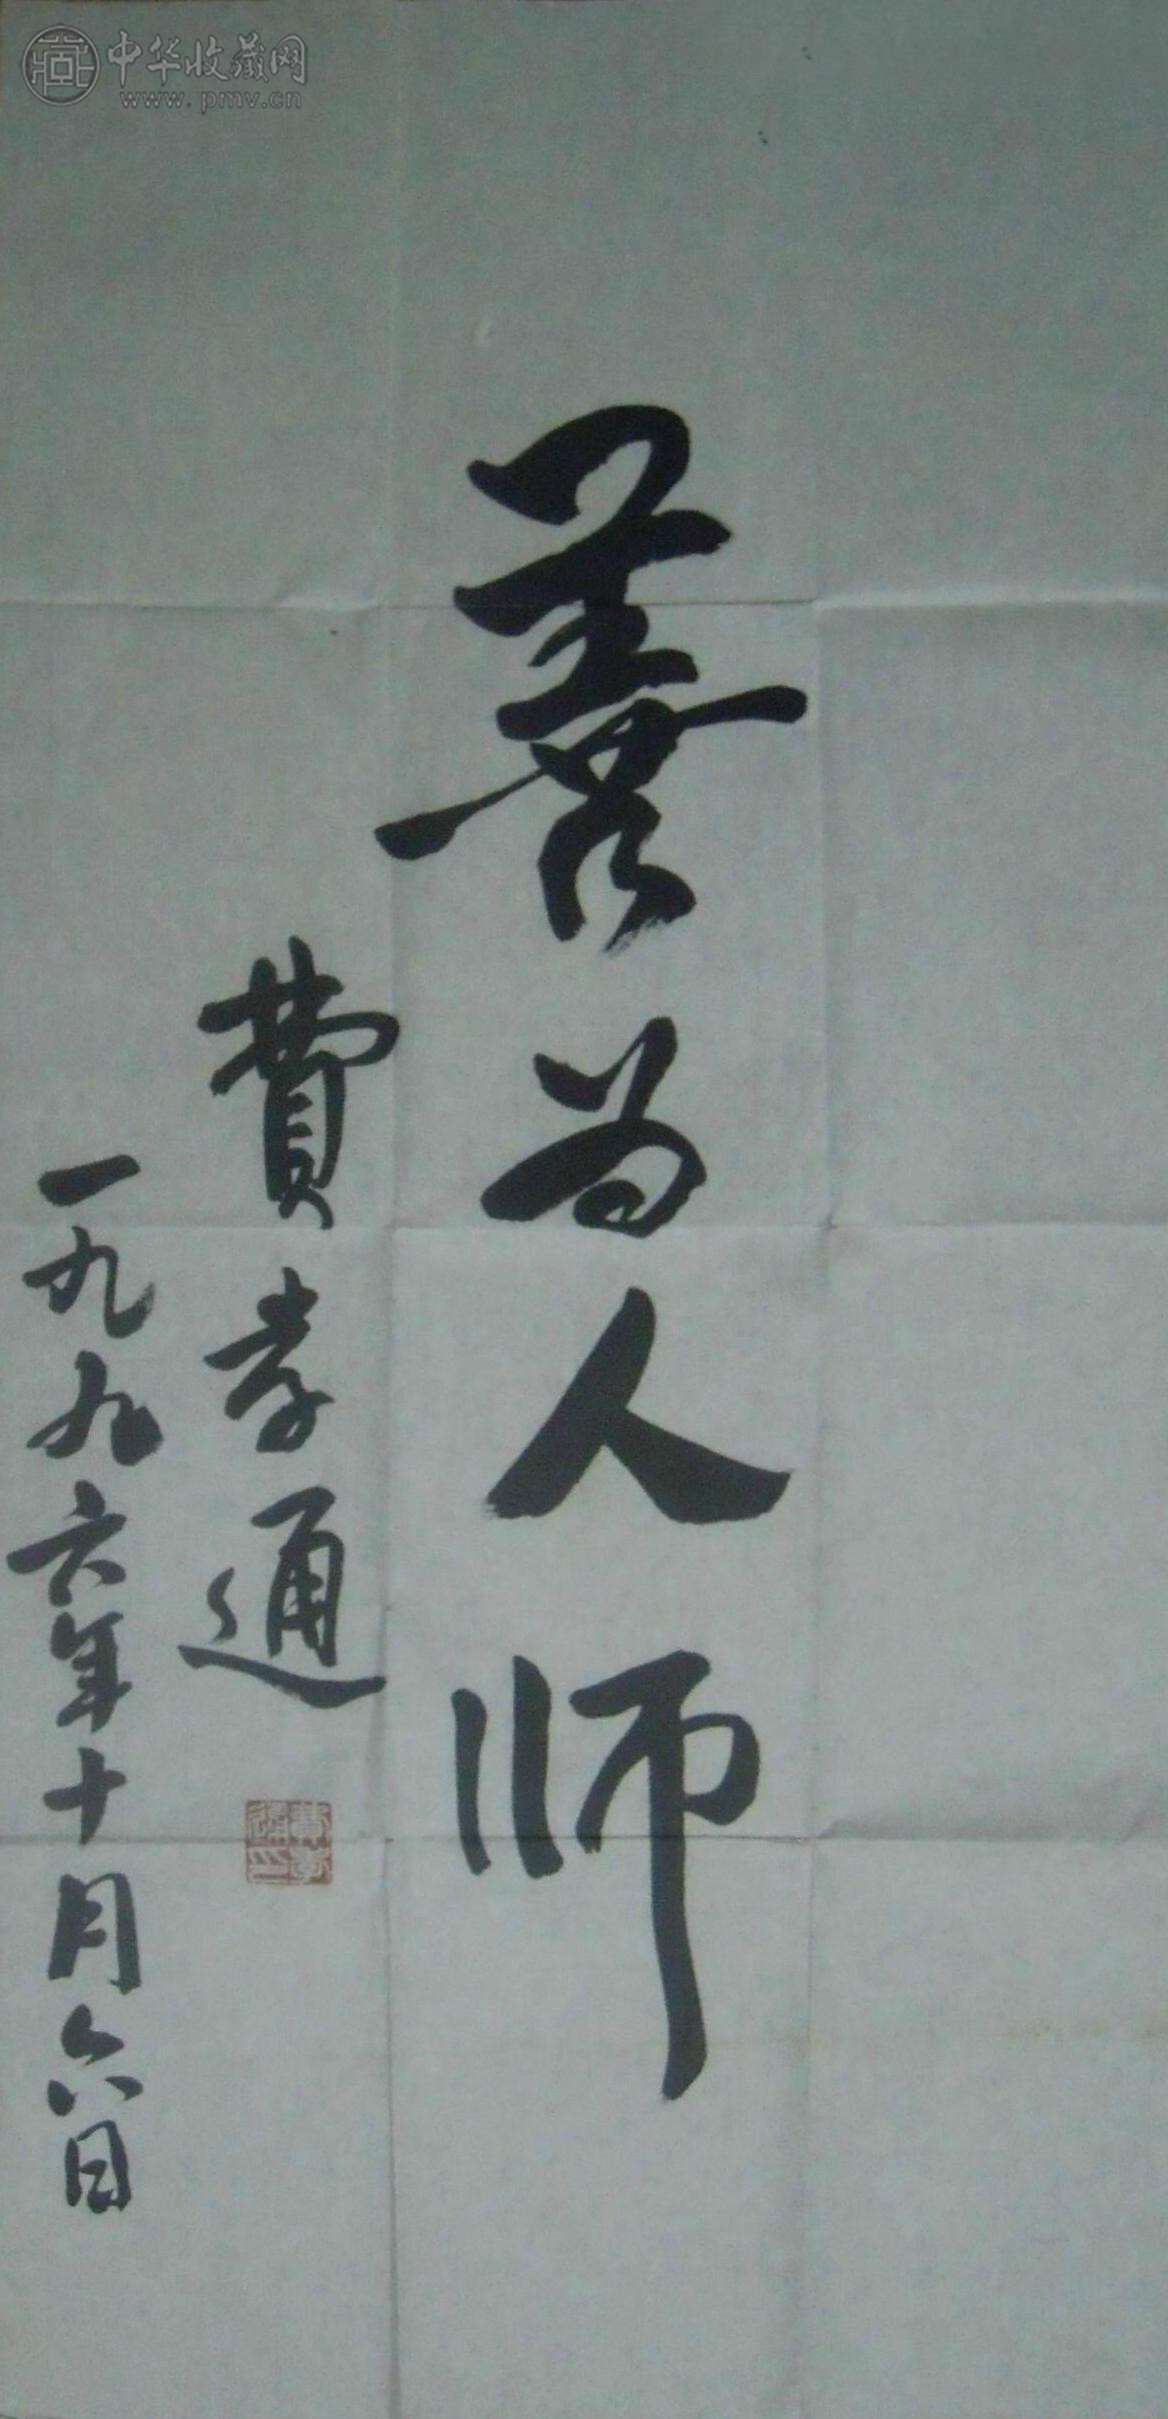 中华收藏网
www.pmv.cn
善为人师
費孝通
一九九六年十月六日
費孝通印